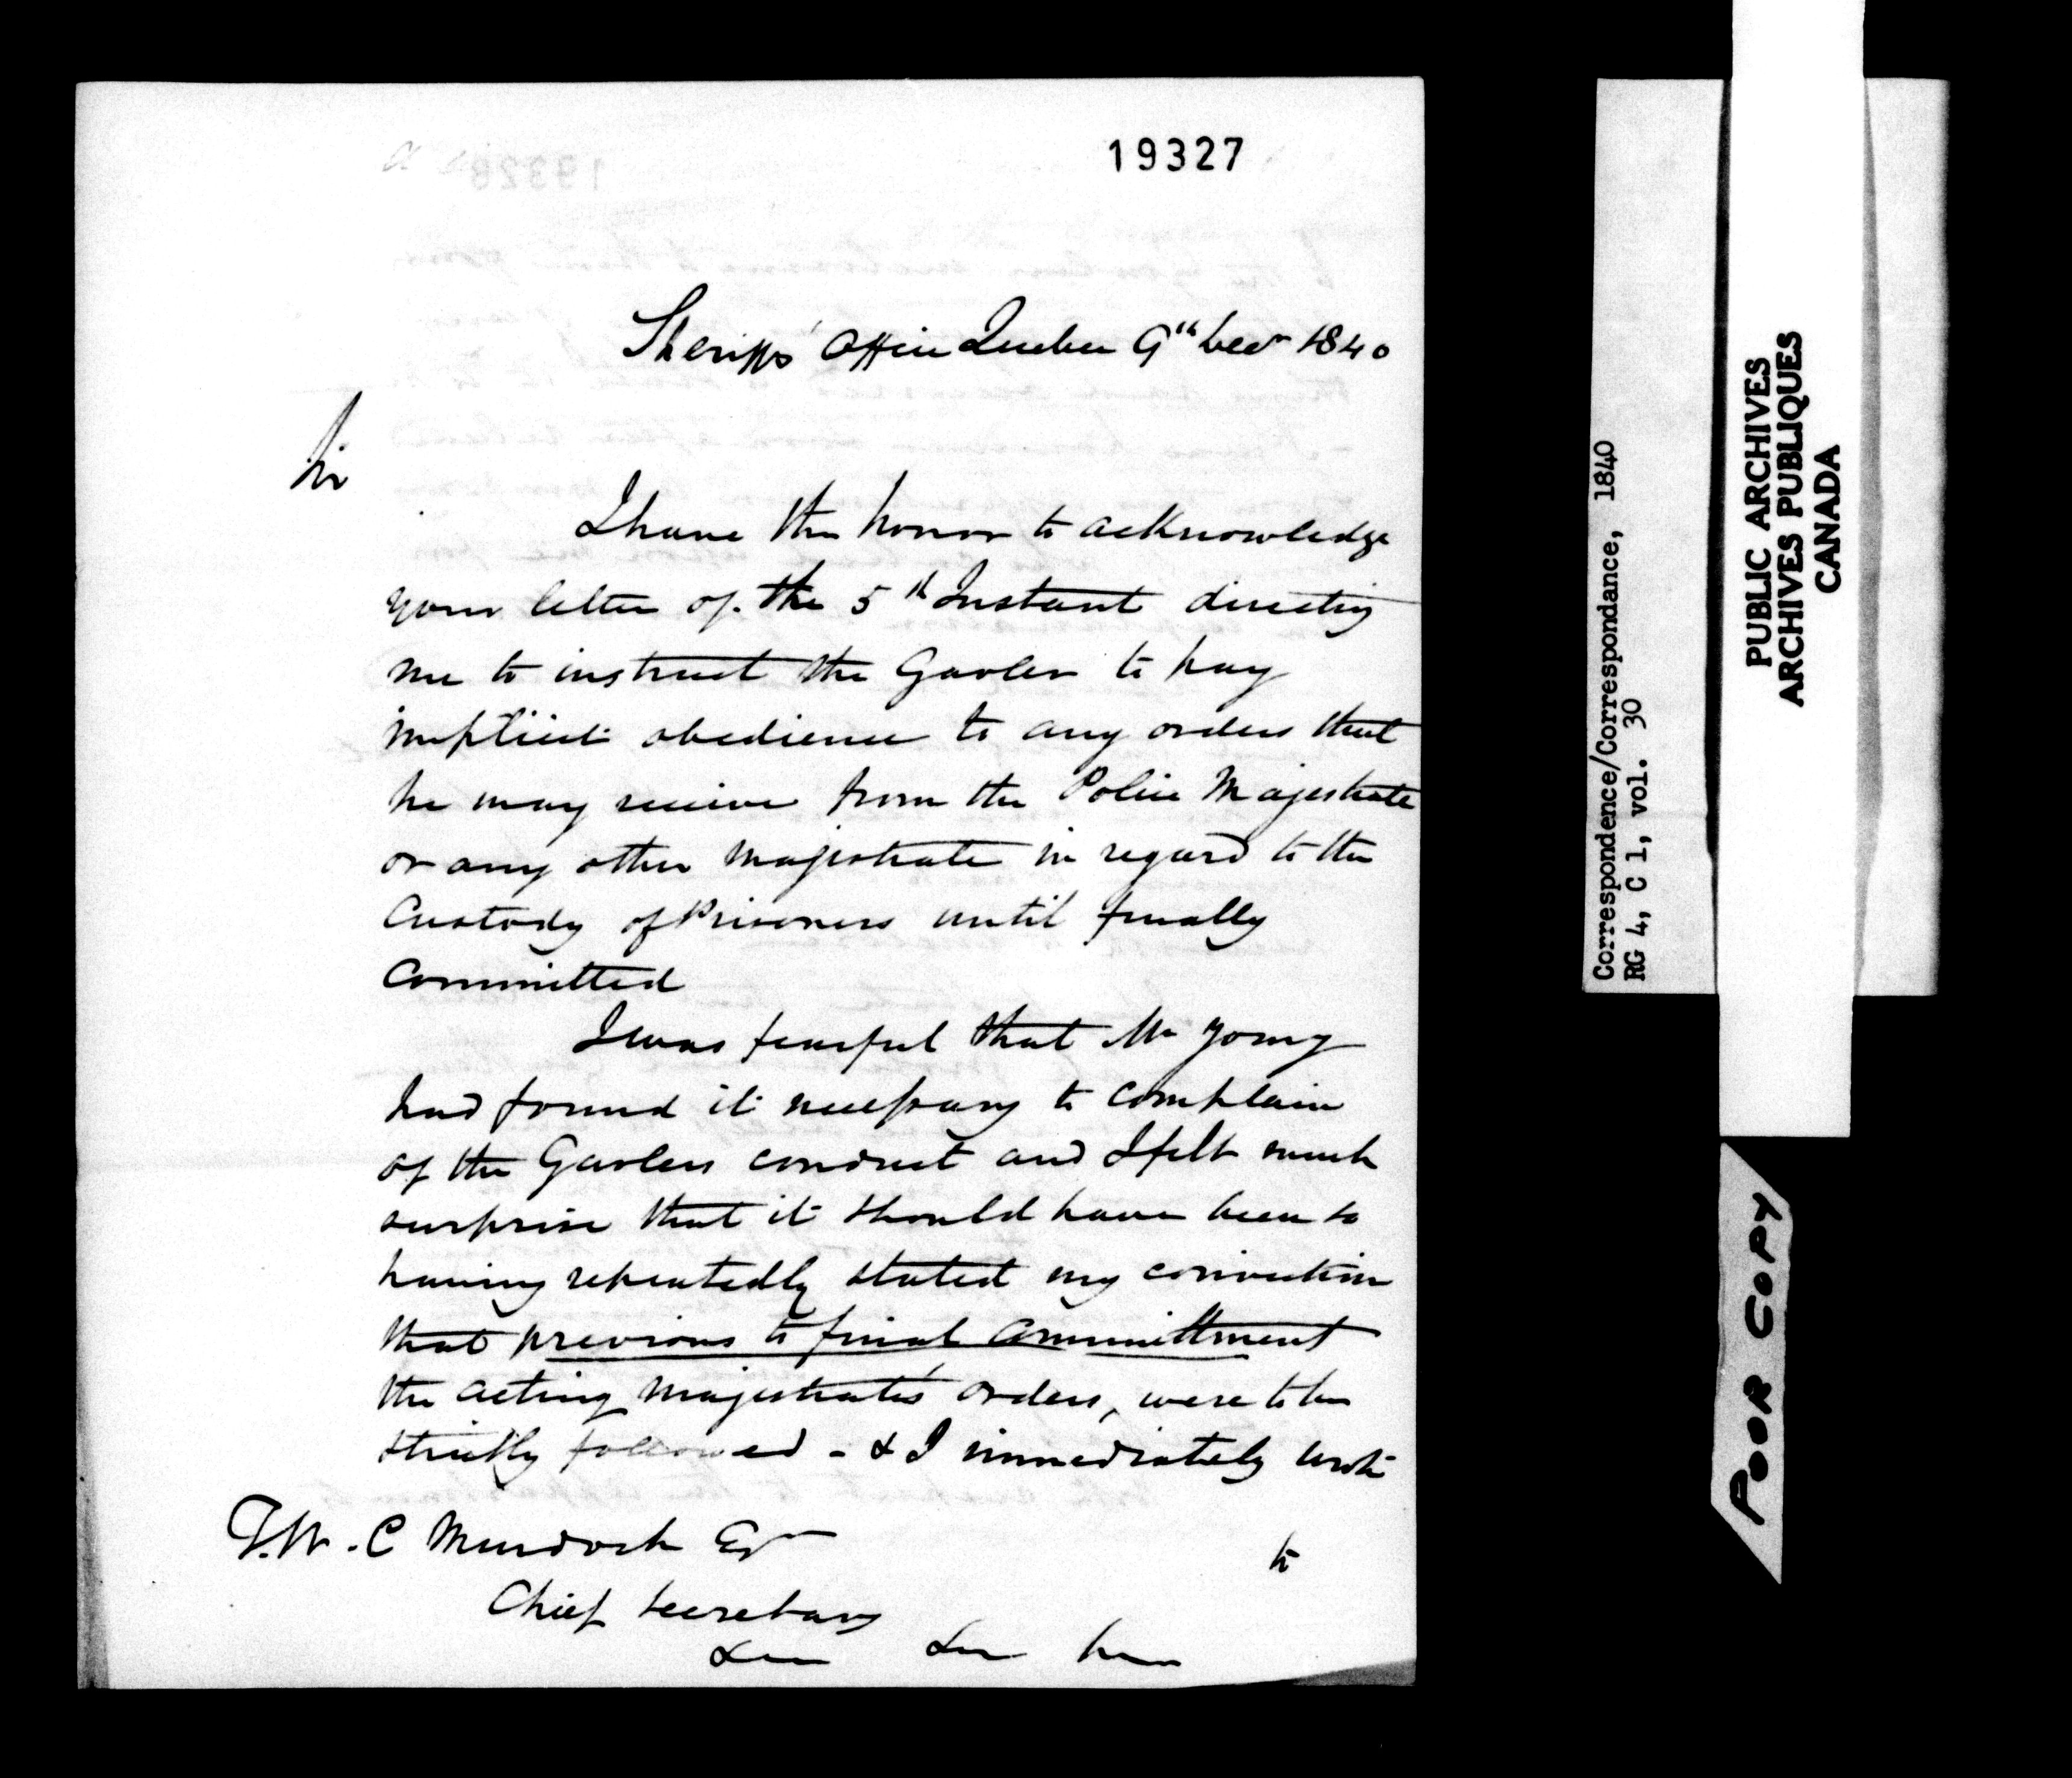 19327
Sheriffs' Office Quebec 9th Decr 1840
Sir
I have the honor to acknowledge
your letter of the 5th Instant directing
me to instruct the Gaoler to pay
implicit obedience to any orders that
he may receive from the Police Majestrate
or any other Majestrate in regard to the
Custody of Prisoners until finally
Committed
I was fearful that Mr Young
had found it necessary to complain
of the Gaolers conduct and I felt much
surprise that it should have been so
having repeatedly stated my conviction
that previous to final Committment
the acting Majestrate's orders, were to be
strictly followed - & I immediately wrote
to
T.W.C Murdoch Esr
Chief Secretary
&c &c &c
Correspondence/Correspondance, 1840
RG 4, C 1, vol. 30
PUBLIC ARCHIVES
ARCHIVES PUBLIQUES
CANADA
POOR COPY